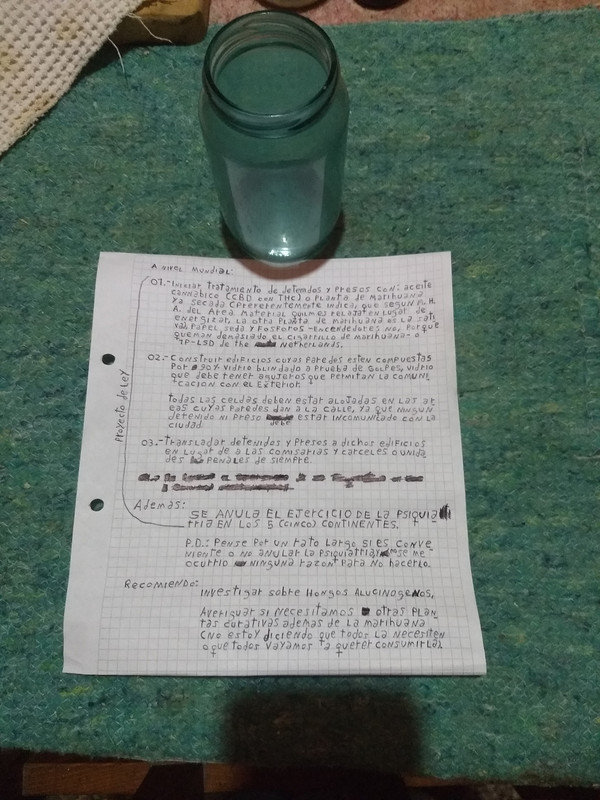 A NIVEL MUNDIAL:
01.- Iniciar tratamiento de detenidos y presos con: aceite
cannábico (CBD con THC) o planta de marihuana
ya secada (preferentemente indica, que según M. H.
A. del Area Material Quilmes relaja en lugar de
energizar, la otra planta de marihuana es la sati
va), papel, seda y fosforos -encendedores no, porque
queman demasiado el cigarrillo de marihuana- o
1P-LSD de the Netherlands.
02.- Construir edificios cuyas paredes esten compuestas
por 90% vidrio blindado a prueba de golpes, vidrio
que debe tener agujeros que permitan la comuni
cacion con el exterior.
todas las celdas deben estar alojadas en las ar
eas cuyas paredes dan a la calle, ya que ningun
detenido ni preso estar incomunicado con la
debe
ciudad.
03.- transladar detenidos y presos a dichos edificios
en lugar de a las comisarias y carceles o unida
des penales de siempre.
Proyecto de Ley
Ademas:
SE ANULA EL EJERCICIO DE LA PSIQUIA
tria EN LOS 5 (CINCO) CONTINENTES.
P.D.: Pense por un rato largo si es conve
niente o no anular la psiquiatria, no se me
ocurrio ninguna razon para no hacerlo.
Recomiendo:
Investigar sobre Hongos Alucinogenos,
Averiguar si necesitamos otras plan
tas curativas ademas de la marihuana
(no estoy diciendo que todos la necesiten
o que todos vayamos a querer consumirla)